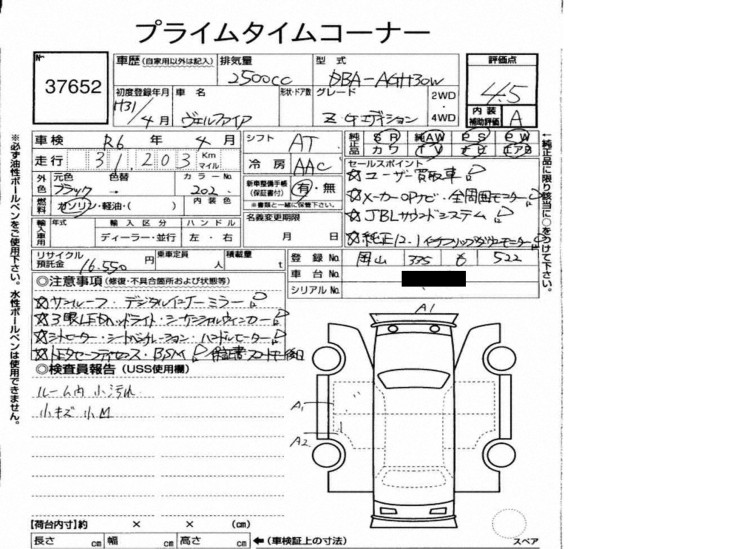 プライムタイムコーナー
No.
37652
車歴 (自家用以外は記入) 排気量 型式 評価点
2500cc DBA-AGH30W 4.5
初度登録年月 車名 形状・ドア数 グレード 2WD
H31/4月 ヴェルファイア Z Gエディション ・4WD
内装補助評価 A
車検 R6年4月 シフト AT 純正品 SR 純AW PS PW
走行 31,203 Km マイル 冷房 AAC カワ TV ナビ エアB
外色 元色 色替 カラーNo.
ブラック → 202
新車整備手帳(保証書付) 有・無
※書類と一緒に保管下さい。
燃料 ガソリン・軽油・( ) 内装色
名義変更期限
月 日
セールスポイント
☆ユーザー買取車
☆メーカーOPナビ・全周囲モニター
☆JBLサウンドシステム
☆純正12.1インチフリップダウンモニター
輸入車用 年式 輸入区分 ハンドル
ディーラー・並行 左・右
リサイクル預託金 16,550円 乗車定員 人 積載量 t
登録No. 岡山 335 も 522
車台No.
シリアルNo.
◎注意事項 (修復・不具合箇所および状態等)
☆サンルーフ・デジタルインナーミラー
☆3眼LEDヘッドライト・シーケンシャルウィンカー
☆シートヒーター・シートベンチレーション・ハンドルヒーター
☆トヨタセーフティセンス・BSM 保証書
◎検査員報告 (USS使用欄)
ルーム内 小汚れ
小キズ 小凹
A1
A1
A2
スペア
【荷台内寸】約 × × (cm)
長さ cm 幅 cm 高さ cm ←(車検証上の寸法)
※必ず油性ボールペンをご使用下さい。水性ボールペンは使用できません。
←純正品に限り該当に○をつけて下さい。